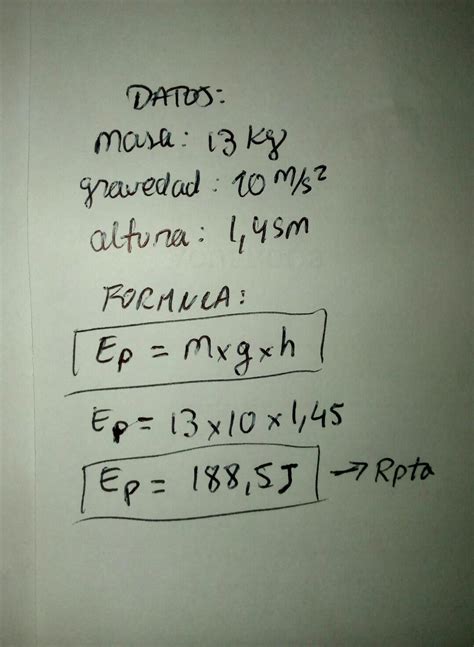 DATOS:
masa: 13 kg
gravedad: 10 m/s²
altura: 1,45m
FORMULA:
Ep = m x g x h
Ep = 13 x 10 x 1,45
Ep = 188,5J → Rpta